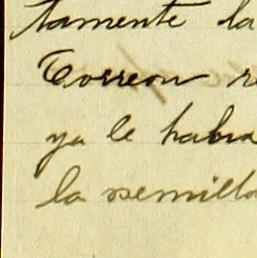 tamente la
Torreon re
ya le habia
la semilla